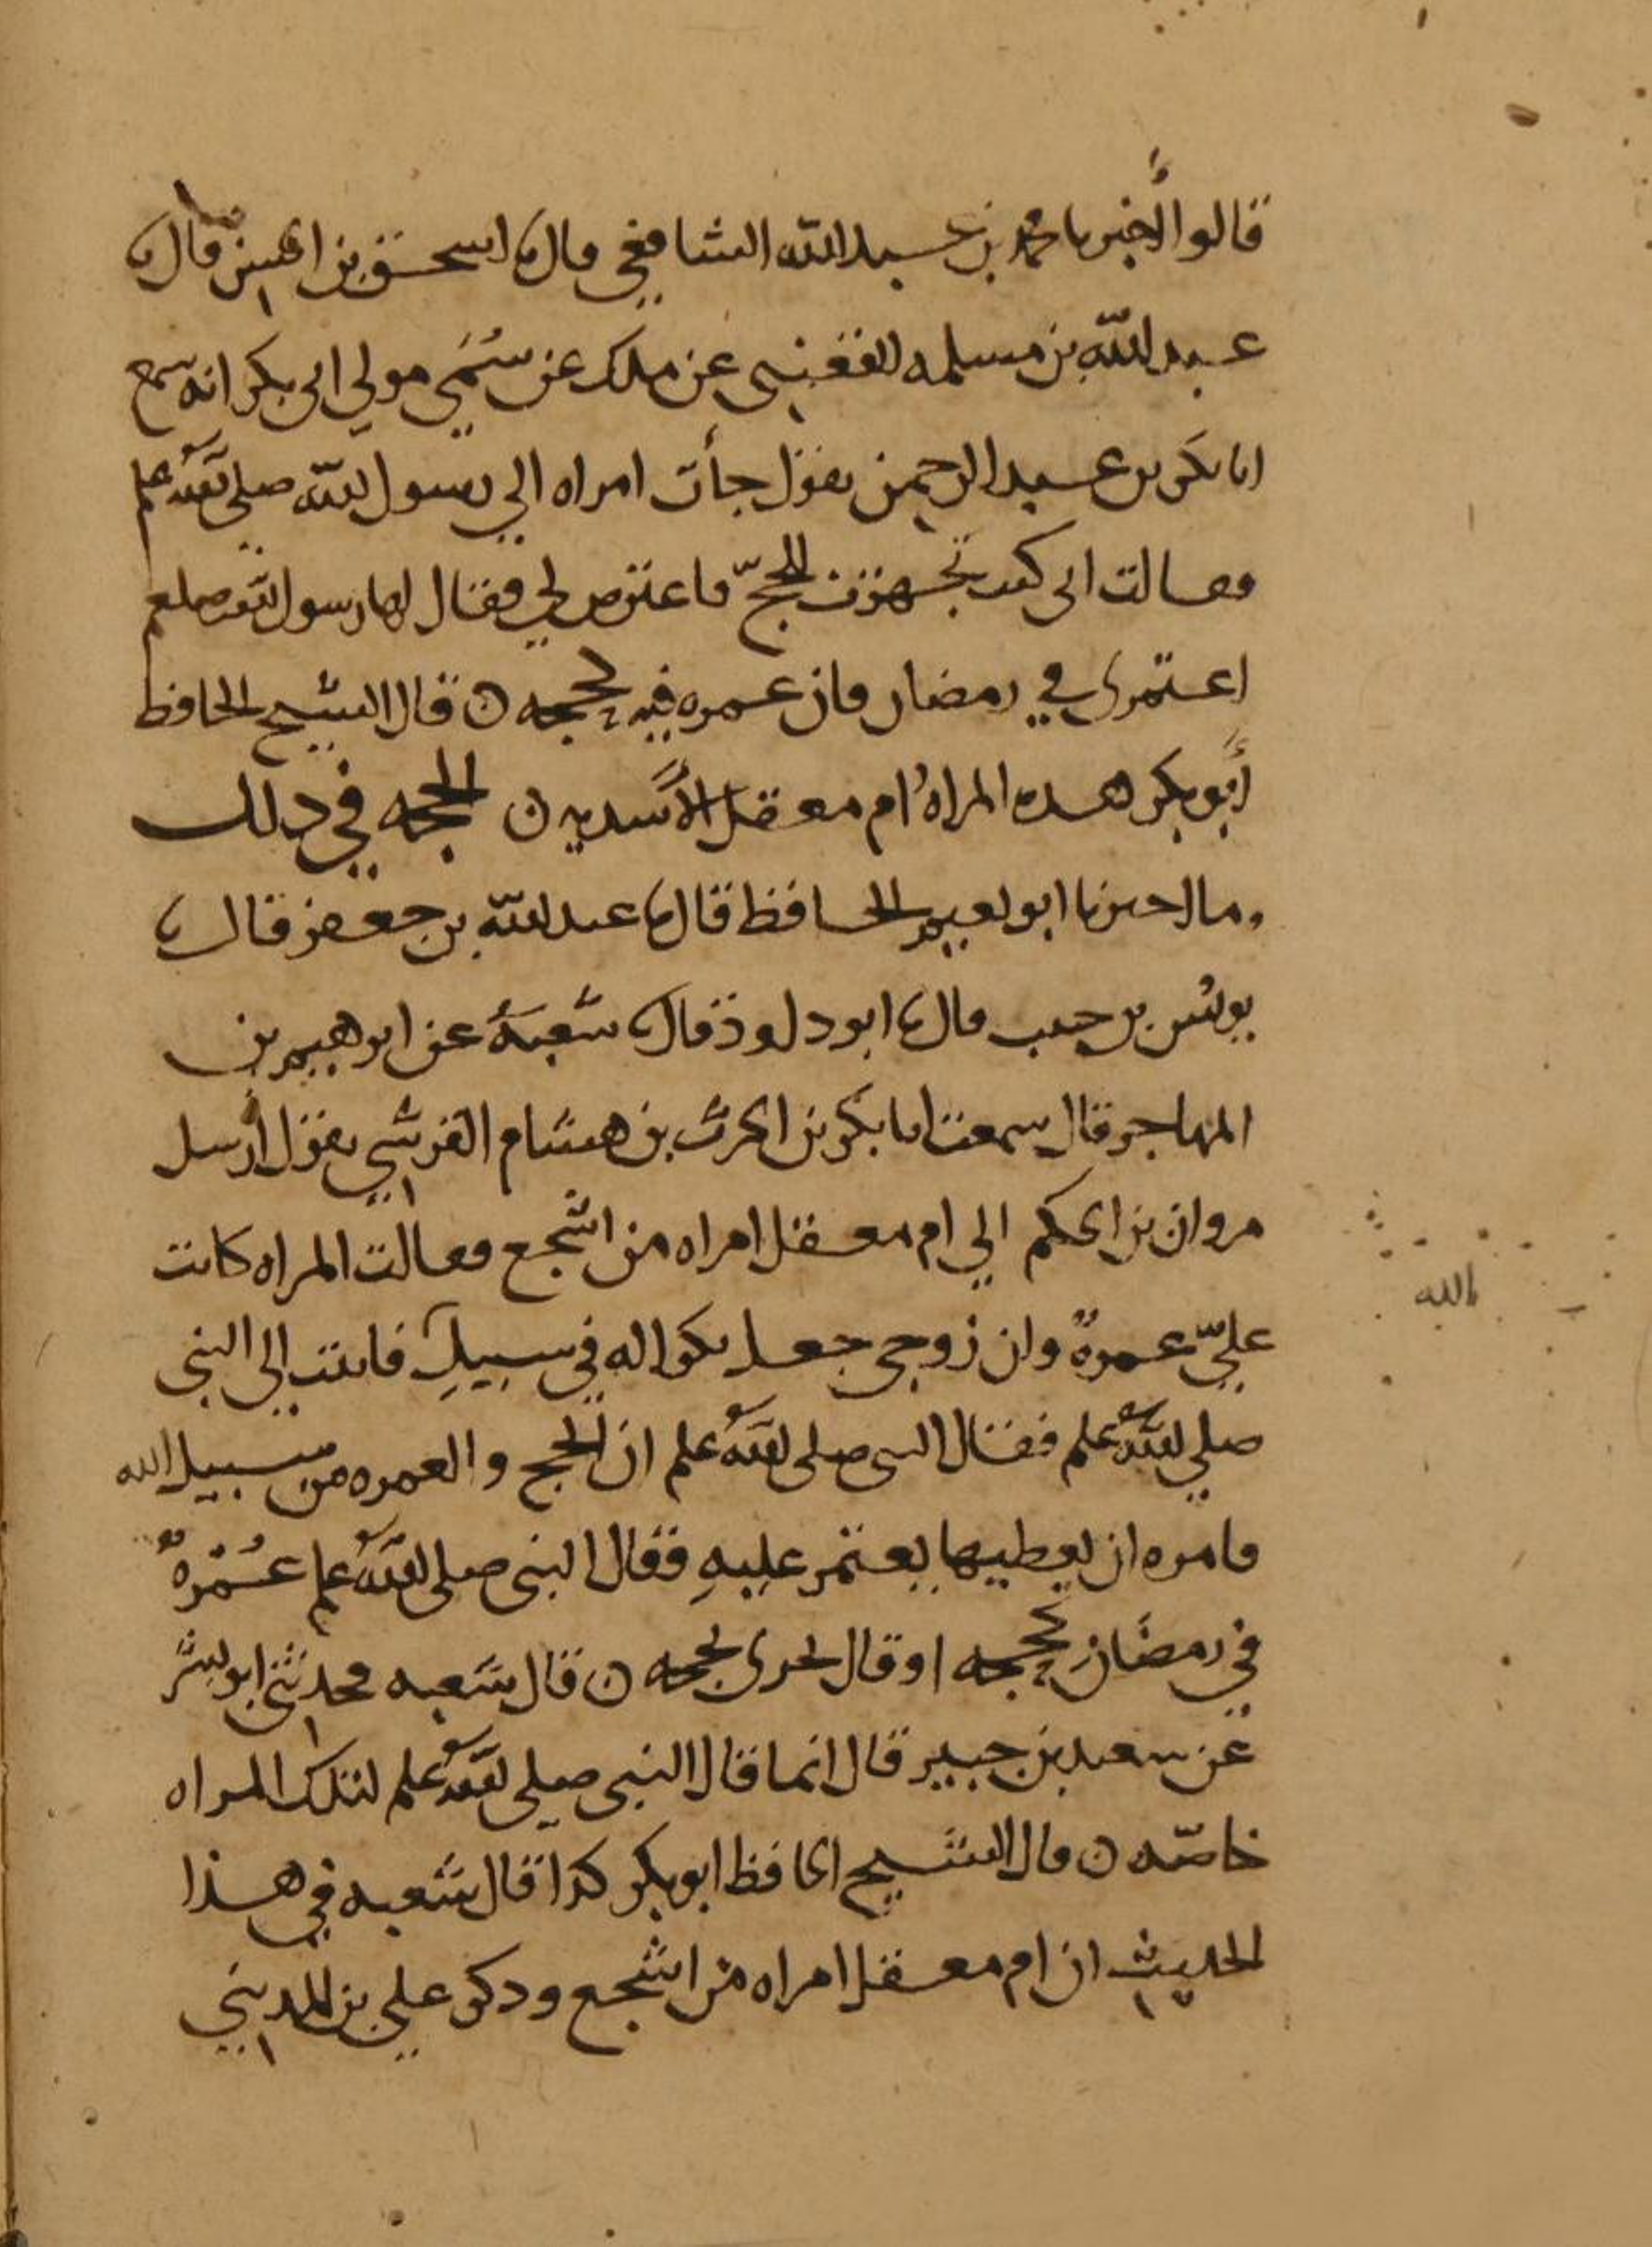 قالوا أخبرنا محمد بن عبد الله الشافعي قال نا اسحق بن الحسن قال نا
عبد الله بن مسلمه القعنبي عن ملك عن سُمَي مولي ابي بكر انه سمع
ابا بكر بن عبد الرحمن يقول جأت امراه الي رسول الله صلي الله علم
فقالت اني كنت تجهزت للحجّ فاعترض لي فقال لها رسول الله صلعم
اعتمري في رمضان فان عمره فيه كحجه ن قال الشيخ الحافظ
أبو بكر هذه المراه أم معقل الأسديه ن الحجه في ذلك
ما اخبرنا ابو نعيم الحافظ قال نا عبد الله بن جعفر قال نا
يونس بن حبيب قال نا ابو داوذ قال نا شعبة عن ابرهيم بن
المهاجر قال سمعت ابا بكر بن الحرث بن هشام القرشي يقول أرسل
مروان بن الحكم الي ام معقل امراه من اشجع فقالت المراه كانت
عليّ عمرةٌ وان زوجي جعل بكرا له في سبيلِ فاتيت الي النبي
صلي الله علم فقال النبي صلي الله علم ان الحج والعمره من سبيل الله
فامره ان يعطيها يعتمر عليهِ فقال النبي صلي الله علم عُمْرةٌ
في رمضان كحجه او قال تجزي بحجه ن قال شعبه فحدثني ابو بشر
عن سعيد بن جبير قال انما قال النبي صلي الله علم لتلك المراه
خاصّه ن قال الشيخ الحافظ ابو بكر كذا قال شعبه في هذا
الحديث ان ام معقل امراه من اشجع وذكر علي بن المديني
الله